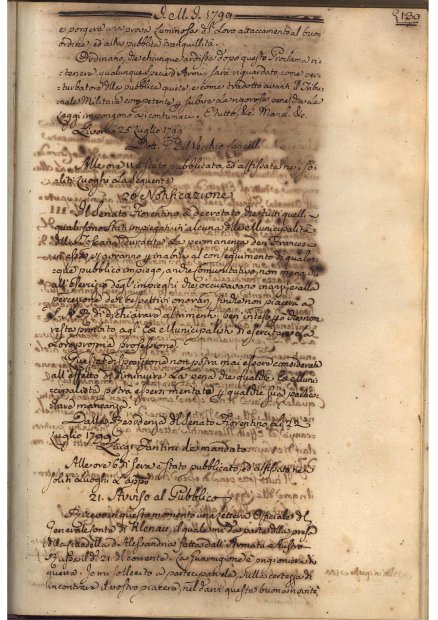 G. M. G. 1799
e porgere una prova luminosa del Loro attaccamento al buon
ordine, ed alla pubblica tranquillità.
Ordinano, che chiunque ardisse dopo questo Proclama ri-
tenere qualunque specie d'Armi, sarà riguardato come per-
turbatore della pubblica quiete, e come tradotto avanti il Tribu-
nale Militare competente, e subire la rigorosa pena che le
Leggi impongono a i contumaci. E tutto, &c. Mand. &c.
Livorno 25 Luglio 1799
Dott. F. Del Vecchio Cancell.
Alle ore è stata pubblicata, ed affissata ne i so-
liti Luoghi la seguente
20 Notificazione
Il Senato Fiorentino à decretato che tutti quelli
quali sono stati impiegati in alcuna delle Municipalità
della Toscana durante la permanenza dei Francesi
in essa, saranno inabili al conseguimento di qualun-
que pubblico impiego, anche comunitativo, non meno che
all'esercizio degli impieghi che occupavano
percezione dei respettivi onorari, finché non piacerà a
S. A. R. di dichiarare altrimenti, ben inteso che non
resta proibito agli Ex-Municipalisti di esercitare la
Loro propria professione.
Questa disposizione non potrà mai essere considerata
all'effetto di diminuire la pena che qualche Ex-Muni-
cipalista potesse aver meritato per qualche sua partico-
lare mancanza
Dalla Presidenza del Senato Fiorentino li 22
Luglio 1799
Luigi Fantini de mandato.
Alle ore 6 di sera è stato pubblicato, ed affissato ne i
soliti luoghi L'appo
21. Avviso al Pubblico
Ricevo in questo momento una Lettera Officiale del
Generale Conte di Klenau, il quale mi dà parte della presa
della Cittadella di Alessandria fatta dall'Armata Austro
Russa il dì 21 del corrente. La Guarnigione è prigioniera di
guerra. Io mi sollecito a parteciparvela, sulla certezza di
incontrare il vostro piacere nel darvi questa buona notizia